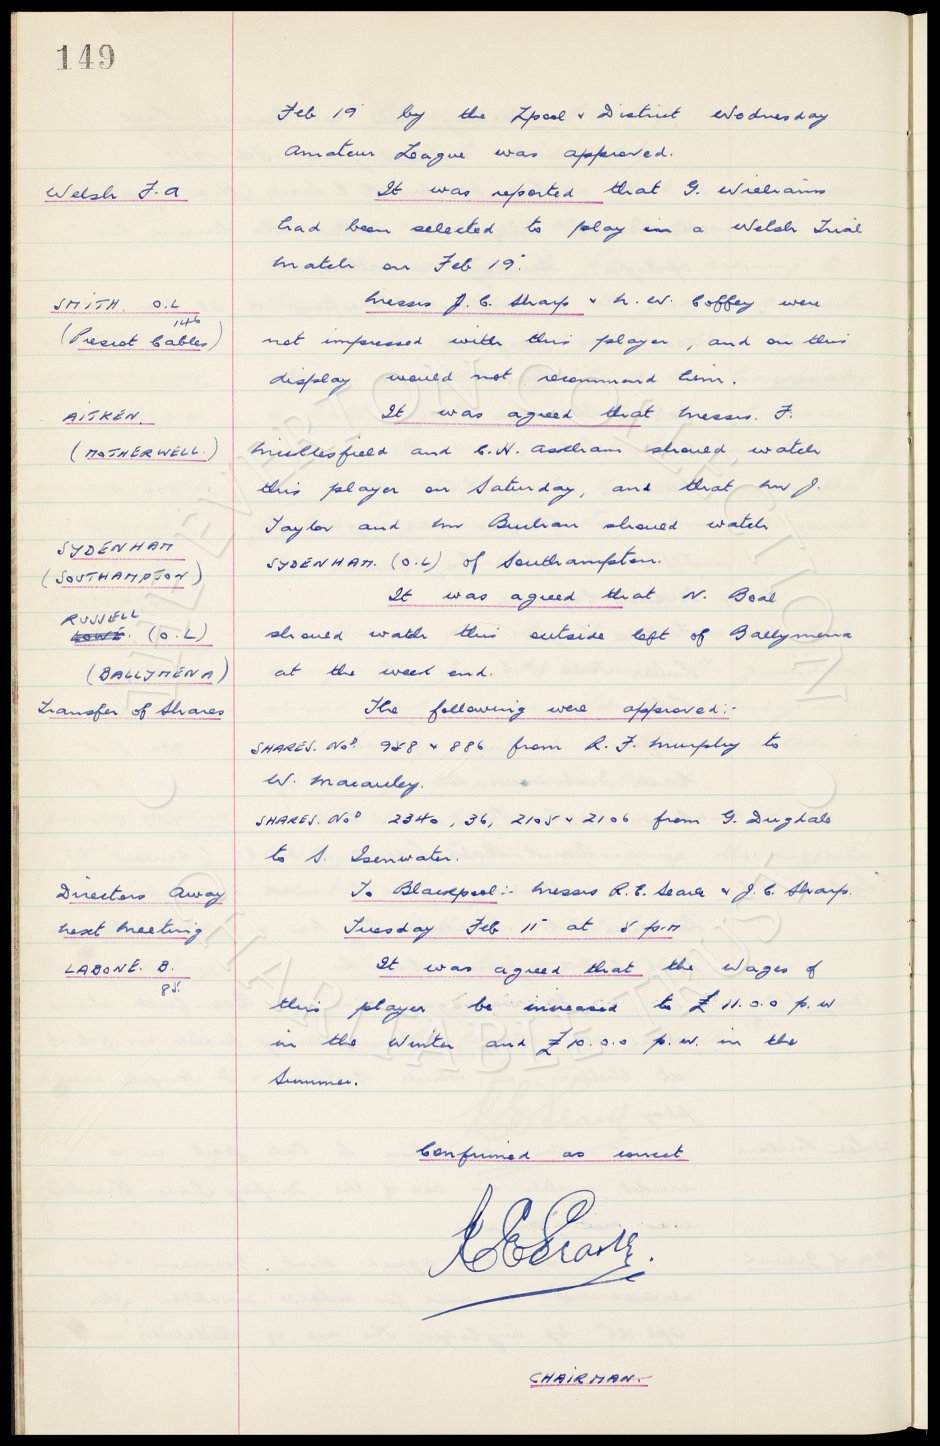 149
Feb 19 by the Lpool & District Wednesday
Amateur League was approved.
Welsh F.A It was reported that G. Williams
had been selected to play in a Welsh Trial
match on Feb 19.
SMITH. O.L Messrs J. C. Sharp & N. W. Coffey were
(Prescot Cables) 146 not impressed with this player, and on this
display would not recommend him.
AITKEN. It was agreed that Messrs. F.
(MOTHERWELL.) Micklesfield and C. H. Askham should watch
this player on Saturday, and that Mr J.
Taylor and Mr Buchan should watch
SYDENHAM SYDENHAM. (O.L) of Southampton.
(SOUTHAMPTON) It was agreed that N. Boal
RUSSELL
LOWE. (O.L) should watch this outside left of Ballymena
(BALLYMENA) at the week end.
Transfer of Shares The following were approved:-
SHARES. Nos. 958 & 886 from R. F. Murphy to
W. Macauley.
SHARES. Nos 2340, 36, 2105 & 2106 from G. Dugdale
to S. Isenwater.
Directors Away To Blackpool:- Messrs R. E. Searle & J. C. Sharp.
Next Meeting Tuesday Feb 11 at 5 p.m
LABONE. B. It was agreed that the Wages of
85. this player be increased to £11.0.0 p.w
in the Winter and £10.0.0 p.w. in the
Summer.
Confirmed as correct
R E Searle.
CHAIRMAN.
THE EVERTON COLLECTION
CHARITABLE TRUST